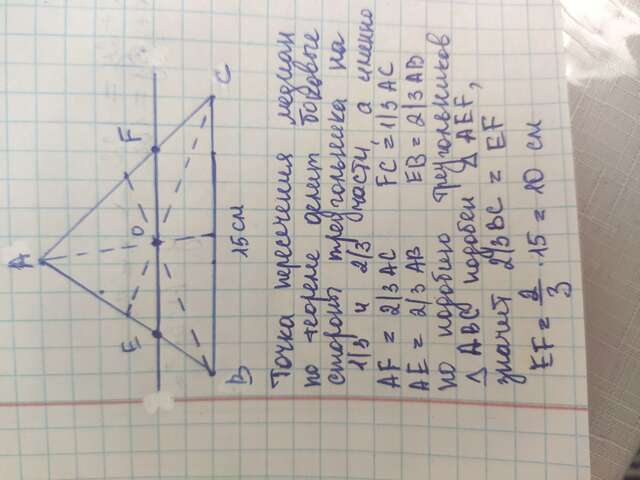 A
E
O
F
B
15 см
C
Точка пересечения медиан
по теореме делит боковые
стороны треугольника на
1/3 и 2/3 части, а именно
AF = 2/3 AC FC = 1/3 AC
AE = 2/3 AB EB = 2/3 AB
по подобию треугольников
△ ABC подобен △ AEF,
значит 2/3 BC = EF
EF = 2/3 · 15 = 10 см